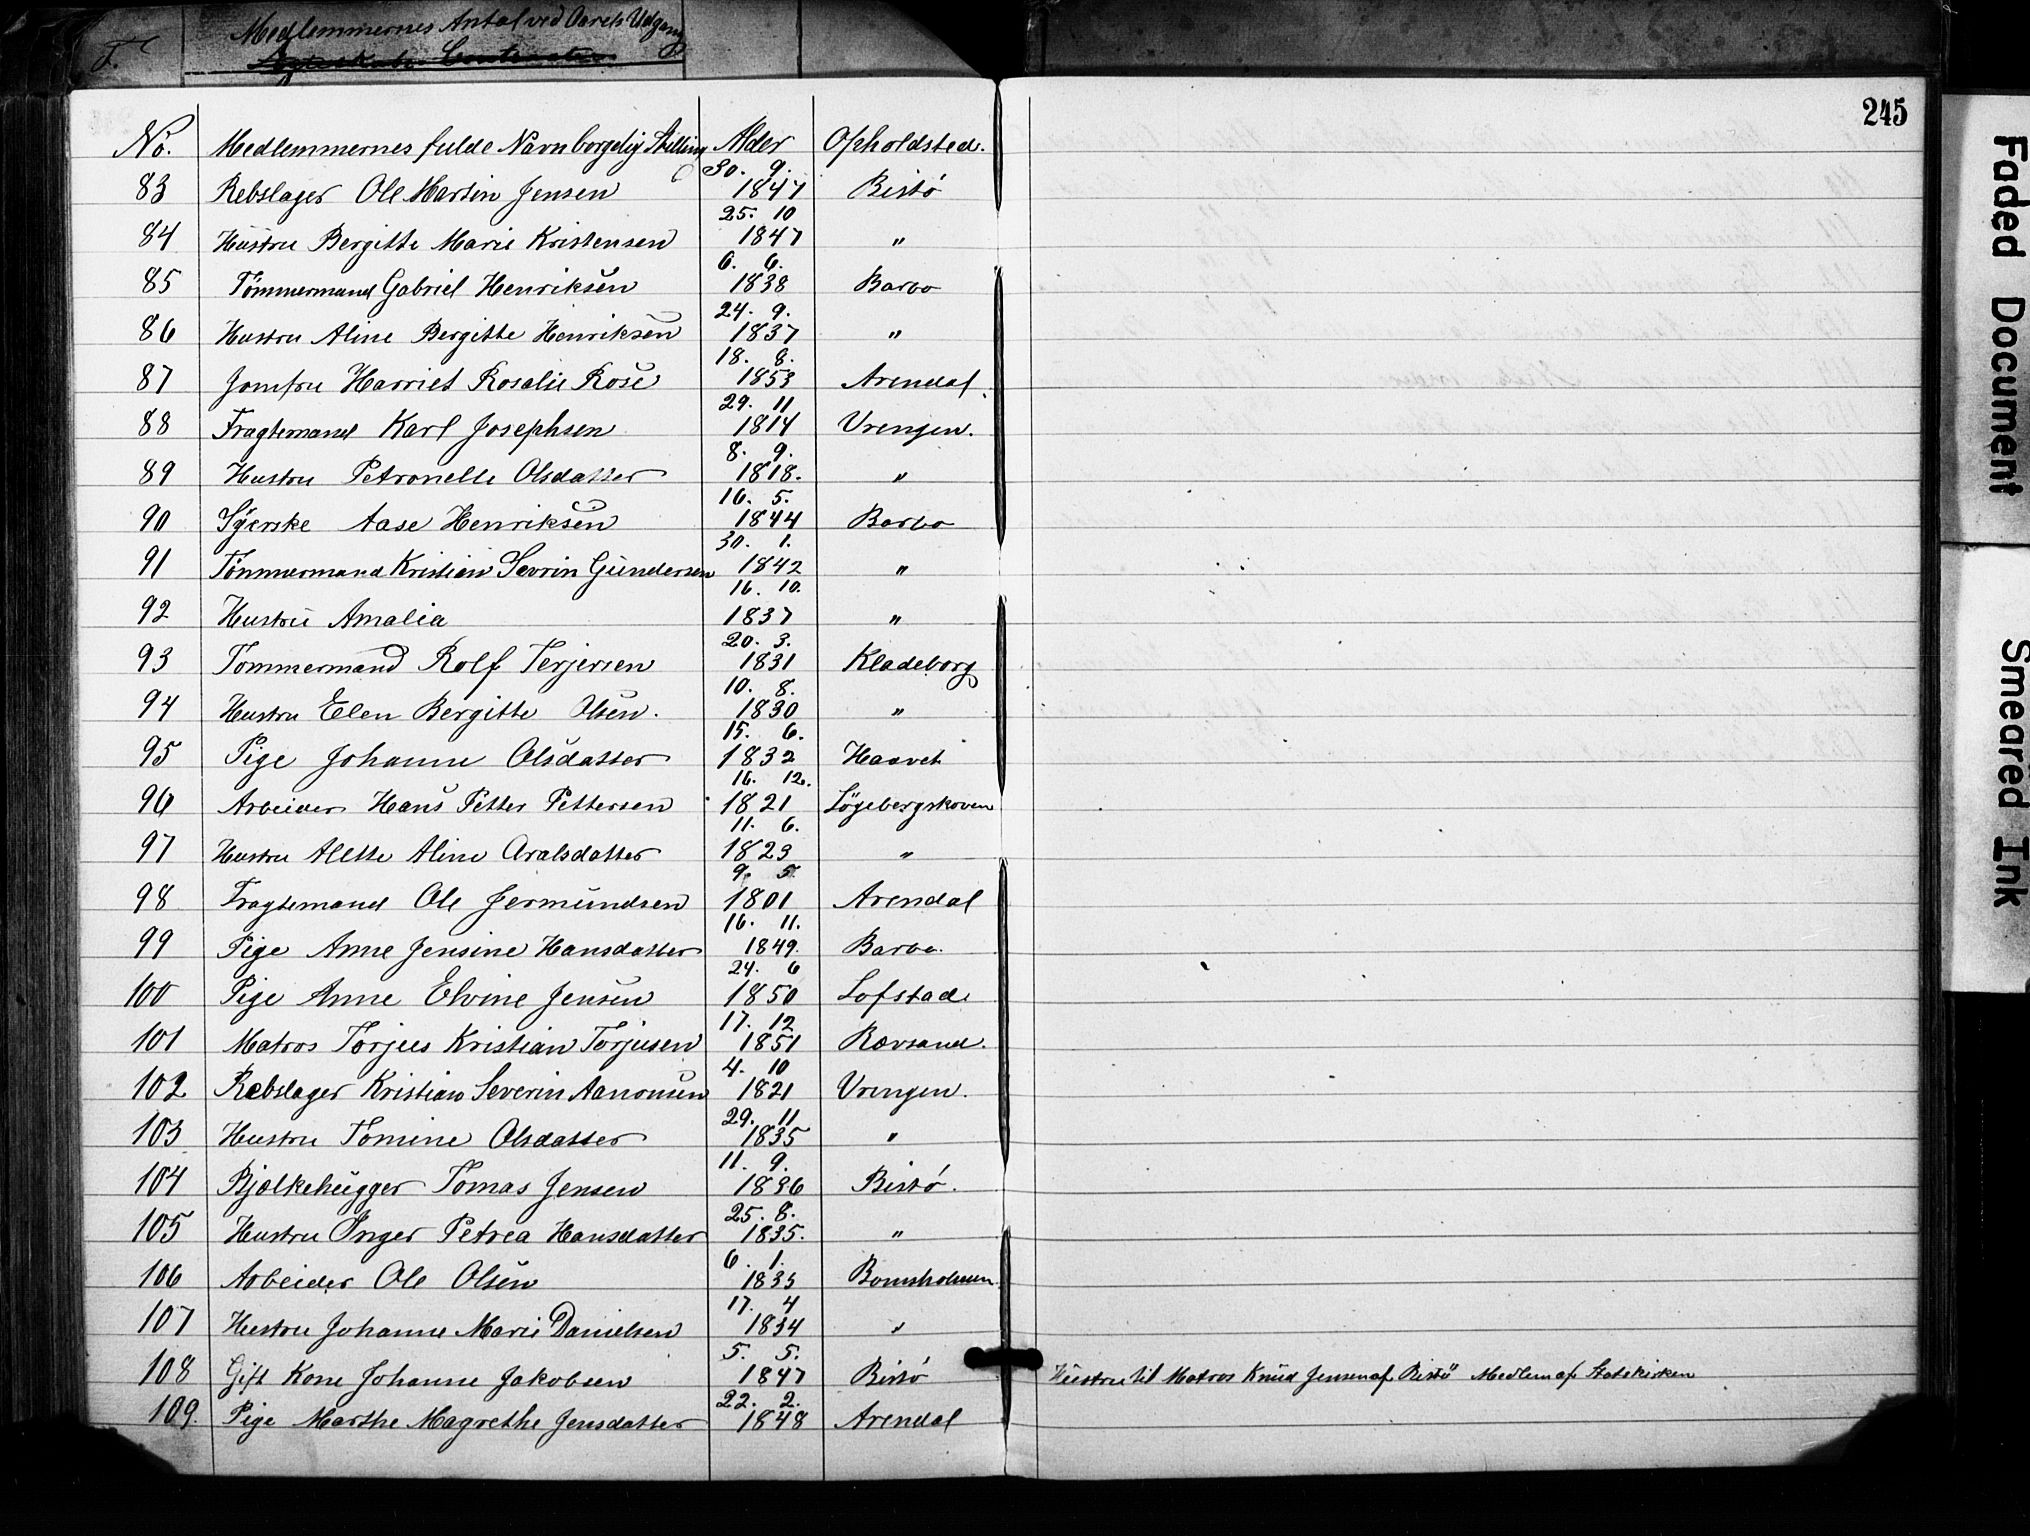 F.
Medlemmernes Antal ved Aarets Udgang
245
No. Medlemmernes fulde Navn borgelig Stilling Alder Opholdsted.
83 Rebslager Ole Martin Jensen 30. 9. 1847 Bistö
84 Hustru Bergitte Marie Kristensen 25. 10 1847 "
85 Tömmermand Gabriel Henriksen 6. 6. 1838 Barbo
86 Hustru Aline Bergitte Henriksen 24. 9. 1837 "
87 Jomfru Harriet Rosalie Rose 18. 8. 1853 Arendal.
88 Fragtemand Karl Josephsen 29. 11 1814 Vrengen.
89 Hustru Petronelle Olsdatter 8. 9. 1818. "
90 Syerske Aase Henriksen 16. 5. 1844 Barbo
91 Tömmermand Kristian Sevrin Gundersen 30. 1. 1842 "
92 Hustru Amalia 16. 10. 1837 "
93 Tommermand Rolf Terjersen 20. 3. 1831 Kladeborg
94 Hustru Elen Bergitte Olsen. 10. 8. 1830 "
95 Pige Johanne Olsdatter 15. 6. 1832 Haavet
96 Arbeider Hans Petter Pettersen 16. 12. 1821 Lögebergskoven
97 Hustru Alette Aline Aralsdatter 11. 6. 1823 "
98 Fragtemand Ole Jermundsen 9. 5. 1801 Arendal
99 Pige Anne Jensine Hansdatter 16. 11. 1849. Barbo.
100 Pige Anne Elvine Jensen 24. 6 1850 Lofstad
101 Matros Torjus Kristian Torjusen 17. 12 1851 Rævsand.
102 Rebslager Kristian Severin Aanonsen 4. 10 1821 Vrengen.
103 Hustru Tomine Olsdatter 29. 11 1835 "
104 Bjælkehugger Tomas Jensen 11. 9. 1836 Bistö.
105 Hustru Inger Petrea Hansdatter 25. 8. 1835. "
106 Arbeider Ole Olsen 6. 1. 1835 Bomsholmen
107 Hustru Johanne Marie Danielsen 17. 4 1834 "
108 Gift Kone Johanne Jakobsen 5. 5. 1847 Bistö Hustru til Matros Knud Jensen af Bistö Medlem af Statskirken
109. Pige Marthe Magrethe Jensdatter 22. 2. 1848 Arendal
Faded Document
Smeared Ink